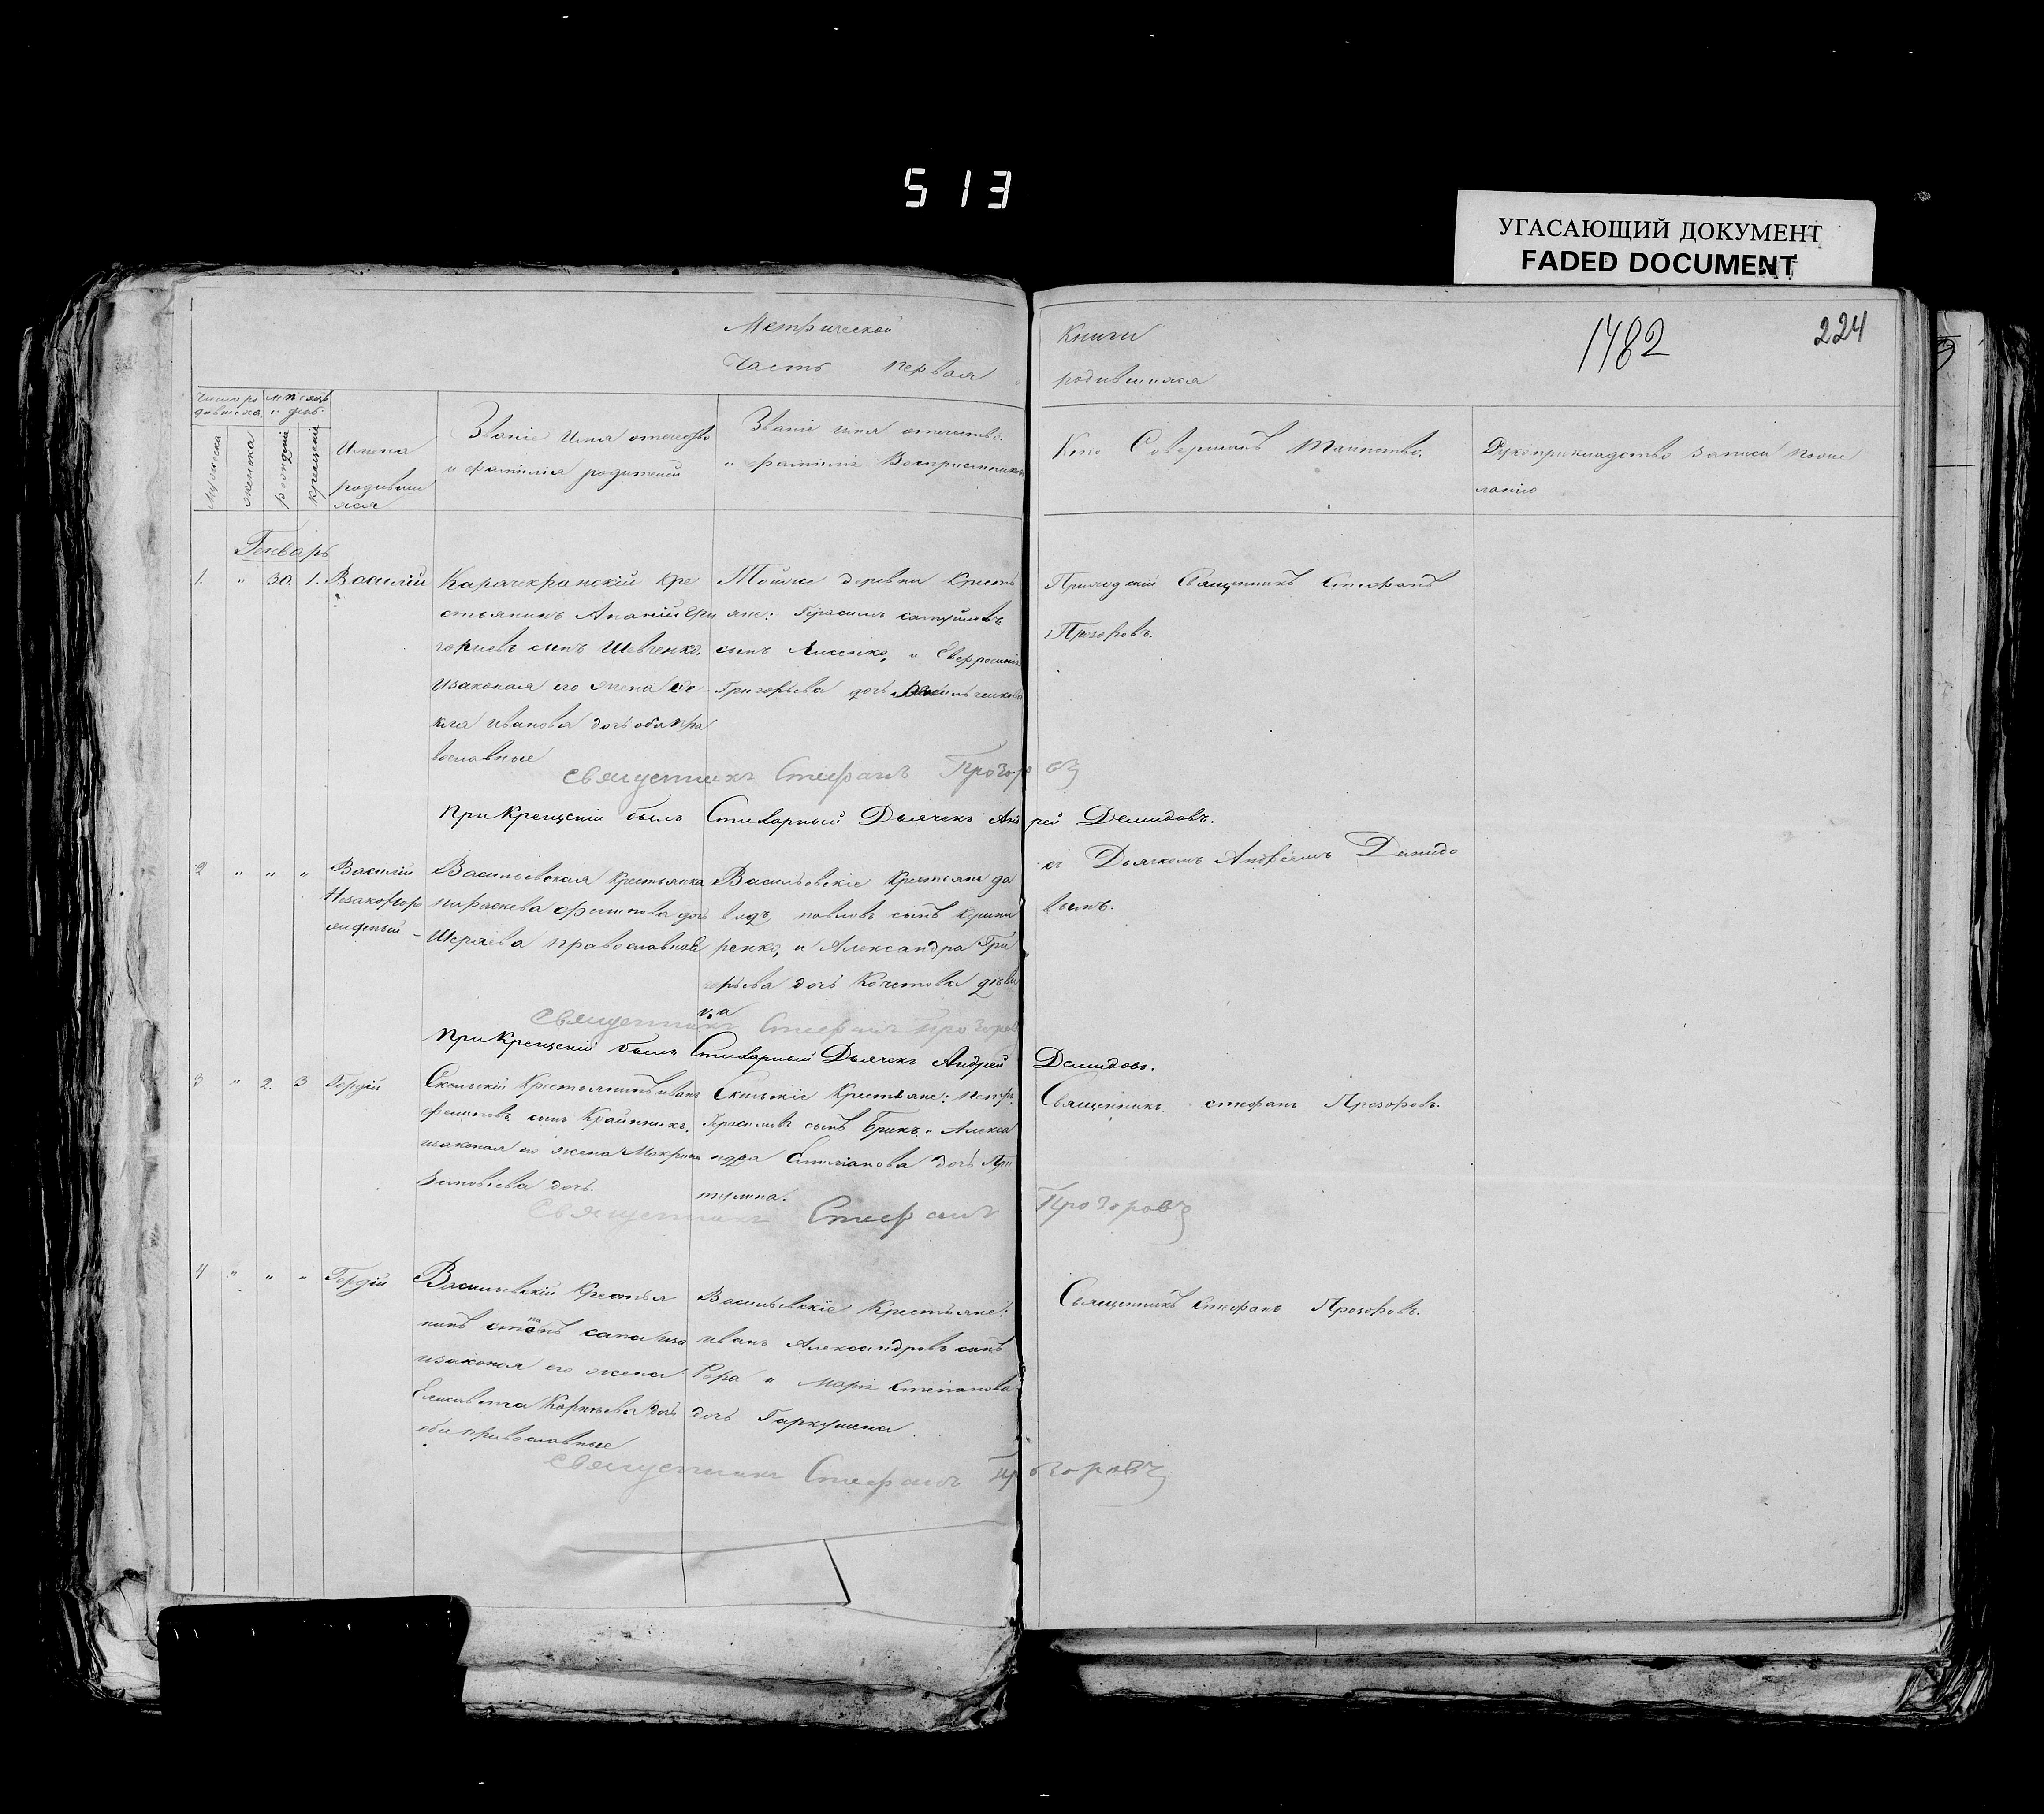 513
УГАСАЮЩИЙ ДОКУМЕНТ
FADED DOCUMENT
Метрической
Часть первая
Книги
родившихся
1482
224
мужеска
женска
рождение
крещение
Имена
родивши
хся
Званіе Имя отечество
и фамилія родителей
Званіе имя отечество
и фамиліе Восприемниковъ
Кто Совершалъ Таинство.
Рукоприкладство записи поже
ланію
Генварь
1. " 30. 1. Василій
Карачекранскій кре
стьянинъ Ананій Гри
горьевъ сынъ Шевченко,
изаконая его жена Ѳе
кла Иванова дочь оба пра
вославные
Тойже деревни Кресть
яне: Герасимъ
сынъ Лисенко, и Евфросинія
Григорьева дочь
Приходскій Священникъ Стефанъ
Прозоровъ.
Священникъ Стефанъ Прозоровъ
При Крещеніи былъ Стихарный Дьячекъ Андрей Демидовъ.
2 " " " Василій
Незаконоро
жденный
Васильевская Крестьянка
параскева Филипова дочь
Ширяева православная
Васильевскіе Крестьяне да
видъ павловъ сынъ
ренко, и Александра Гри
горьева дочь Кочетова дѣви
ца
съ Дьячкомъ Андреемъ Демидо
вымъ.
Священникъ Стефанъ Прозоров
При Крещеніи былъ Стихарный Дьячекъ Андрей Демидовъ.
3 " 2. 3 Гордій
Скельскій Крестьянинъ иванъ
Филиповъ сынъ Крайникъ,
изаконая его жена Макрина
Зеновіева дочь.
Скельскіе Крестьяне: петръ
Герасимовъ сынъ Брикъ и Алекса
ндра Емиліанова дочь
Священникъ стефанъ Прозоровъ.
Священникъ Стефанъ Прозоровъ
4 " " " Гордій
Васильевскій Крестья
нинъ
изаконая его жена
Елисавета Корнѣева дочь
оба православные
Васильевскіе Крестьяне:
иванъ Александровъ сынъ
Рора и Марія Степанова
дочь Гаркушина.
Священникъ Стефанъ Прозоровъ.
Священникъ Стефанъ Прозоровъ